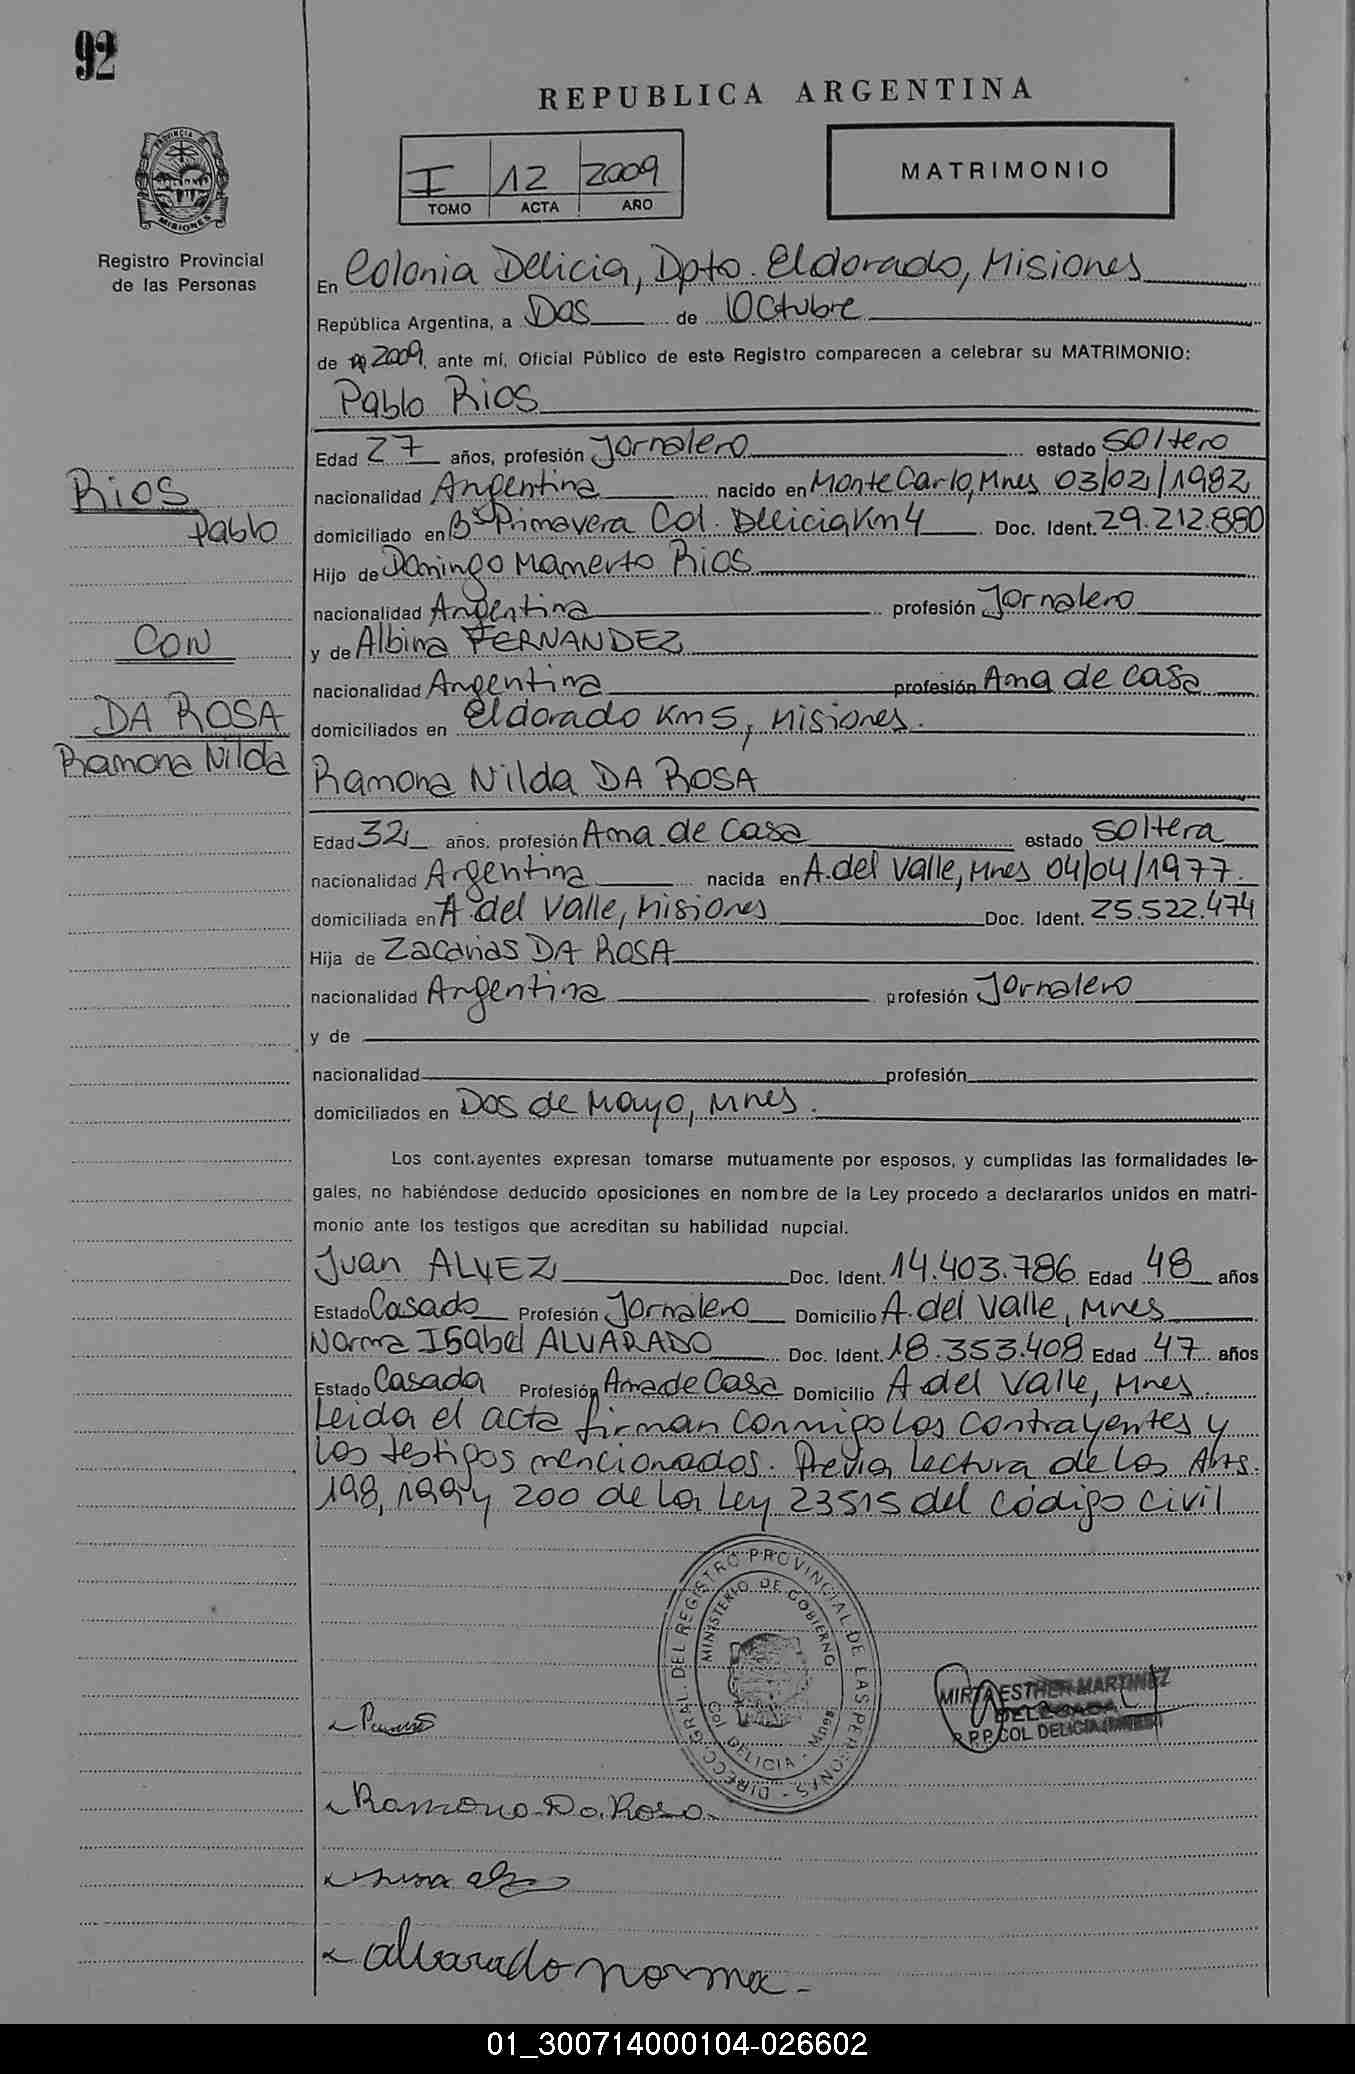 92
REPUBLICA ARGENTINA
I 12 2009
TOMO ACTA AÑO
MATRIMONIO
PROVINCIA DE MISIONES
Registro Provincial
de las Personas
En Colonia Delicia, Dpto. Eldorado, Misiones
República Argentina, a Dos de Octubre
de 2009, ante mí, Oficial Público de este Registro comparecen a celebrar su MATRIMONIO:
Pablo Rios
Edad 27 años, profesión Jornalero estado Soltero
Rios
nacionalidad Argentina nacido en Monte Carlo, Mnes 03/02/1982
Pablo
domiciliado en Bº Primavera Col. Delicia Km 4 Doc. Ident. 29.212.880
Hijo de Domingo Mamerto Rios
nacionalidad Argentina profesión Jornalero
CON
y de Albina FERNANDEZ
nacionalidad Argentina profesión Ama de casa
DA ROSA
domiciliados en Eldorado Km 5, Misiones.
Ramona Nilda
Ramona Nilda DA ROSA
Edad 32 años, profesión Ama de Casa estado Soltera
nacionalidad Argentina nacida en A. del Valle, Mnes 04/04/1977.
domiciliada en A. del Valle, Misiones Doc. Ident. 25.522.474
Hija de Zacarias DA ROSA
nacionalidad Argentina profesión Jornalero
y de
nacionalidad profesión
domiciliados en Dos de Mayo, Mnes.
Los cont.ayentes expresan tomarse mutuamente por esposos, y cumplidas las formalidades le-
gales, no habiéndose deducido oposiciones en nombre de la Ley procedo a declararlos unidos en matri-
monio ante los testigos que acreditan su habilidad nupcial.
Juan ALVEZ Doc. Ident. 14.403.786 Edad 48 años
Estado Casado Profesión Jornalero Domicilio A. del Valle, Mnes
Norma Isabel ALVARADO Doc. Ident. 18.353.408 Edad 47 años
Estado Casada Profesión Ama de Casa Domicilio A del Valle, Mnes
Leida el acta firman conmigo los contrayentes y
los testigos mencionados. Previa lectura de los Arts.
198, 199 y 200 de la Ley 23515 del Código Civil
DIRECC. GRAL. DEL REGISTRO PROVINCIAL DE LAS PERSONAS
MINISTERIO DE GOBIERNO
Col DELICIA - Mnes
MIRTA ESTHER MARTINEZ
DELEGADA
R.P.P. COL DELICIA
Ramona Da Rosa
alvarado norma
01_300714000104-026602